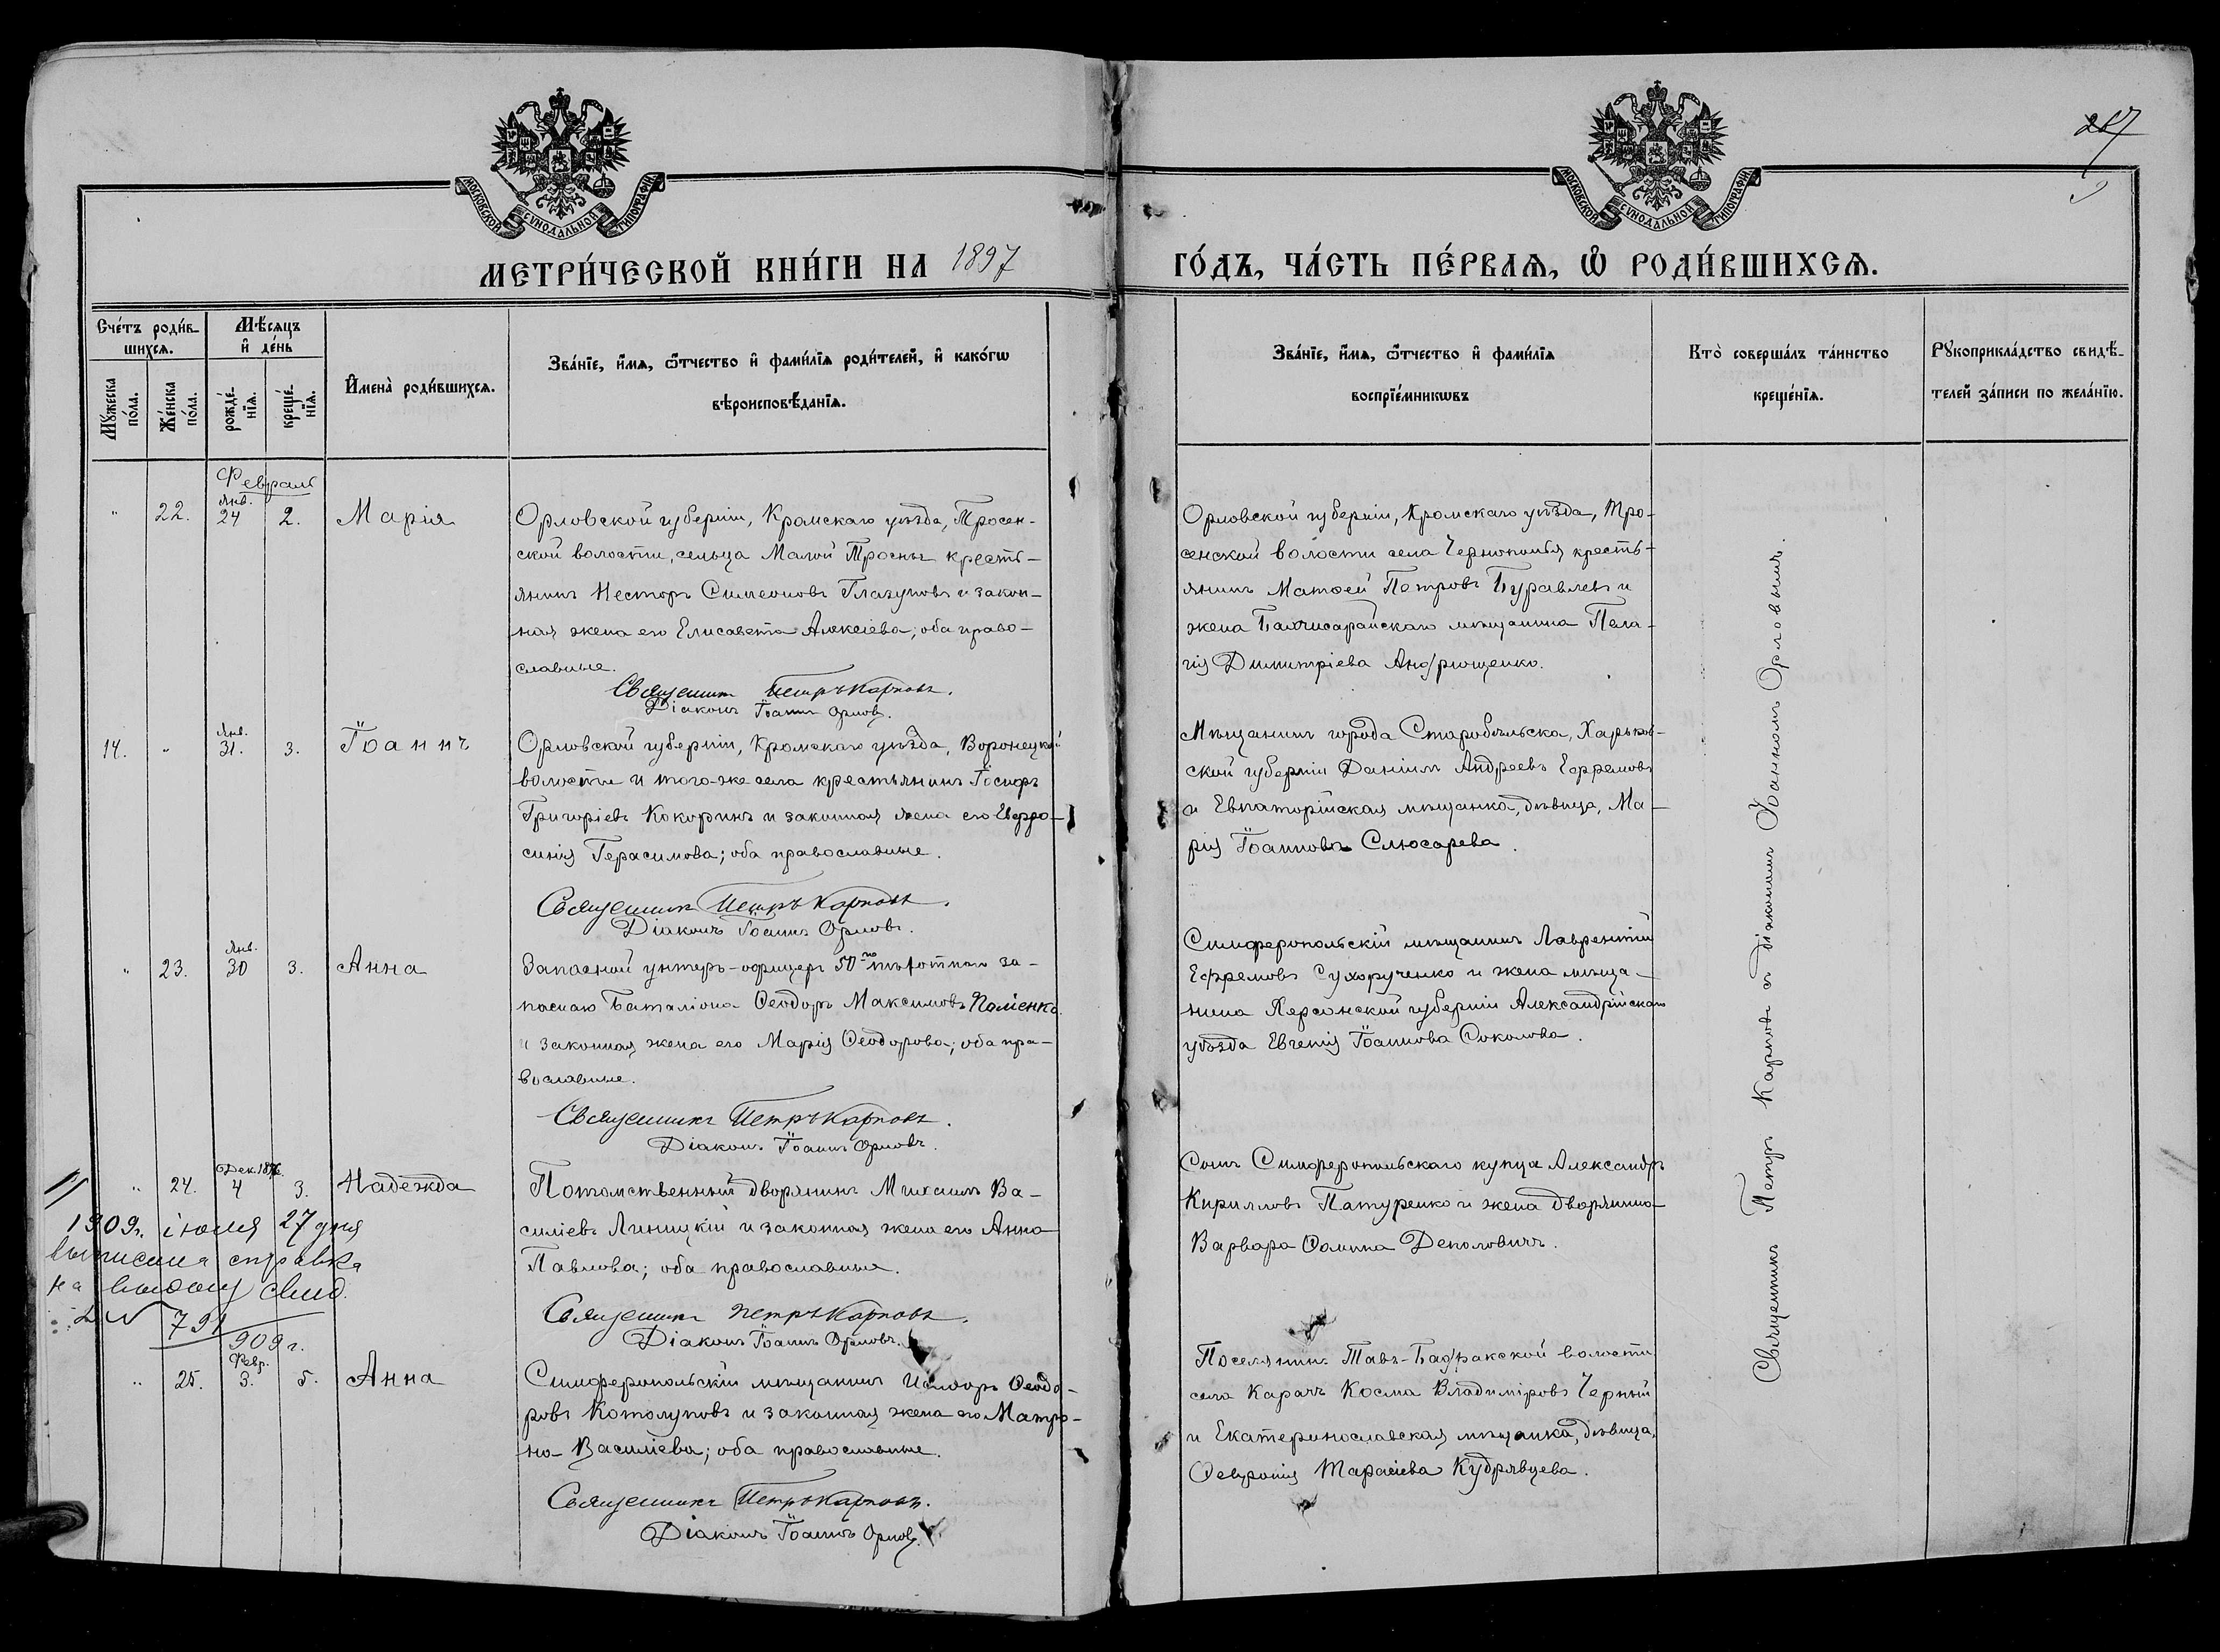 267
МОСКОВСКОЙ СѴНОДАЛЬНОЙ ТИПОГРАФІИ
МОСКОВСКОЙ СѴНОДАЛЬНОЙ ТИПОГРАФІИ
МЕТРИ́ЧЕСКОЙ КНИ́ГИ НА 1897
ГО́ДЪ, ЧА́СТЬ ПЕ́РВАѦ, Ѽ РОДИ́ВШИХСѦ.
Сче́тъ роди́в-
шихсѧ.
Мꙋ́жеска
по́ла.
Же́нска
по́ла.
Мѣ́сѧцъ
и҆ де́нь
рожде́-
нїѧ.
креще́-
нїѧ.
И҆мена̀ роди́вшихсѧ.
Зва́нїе, и҆́мѧ, ѻ҆́тчество и҆ фами́лїѧ роди́телей, и҆ како́гѡ
вѣроисповѣ́данїѧ.
Зва́нїе, и҆́мѧ, ѻ҆́тчество и҆ фами́лїѧ
воспрїе́мникѡвъ
Кто̀ соверша́лъ та́инство
креще́нїѧ.
Рꙋкоприкла́дство свидѣ́-
телей за́писи по жела́нїю.
Февраль
" 22. Янв. 24 2. Марія
Орловской губерніи, Кромскаго уѣзда, Тросен-
ской волости, сельца Малой Тросны кресть-
янинъ Несторъ Симеоновъ Глазуновъ и закон-
ная жена его Елисавета Алексіева; оба право-
славные.
Священникъ Петръ Карповъ.
Діаконъ Іоаннъ Орловъ.
Орловской губерніи, Кромскаго уѣзда, Тро-
сенской волости села Чернополья кресть-
янинъ Матѳей Петровъ Буравлевъ и
жена Бахчисарайскаго мѣщанина Пела-
гія Димитріева Андрющенко.
14. " Янв. 31. 3. Іоаннъ
Орловской губерніи, Кромскаго уѣзда, Воронецкой
волости и того-же села крестьянинъ Іосифъ
Григоріевъ Кокоринъ и законная жена его Евфро-
синія Герасимова; оба православные.
Священникъ Петръ Карповъ.
Діаконъ Іоаннъ Орловъ.
Мѣщанинъ города Старобѣльска, Харьков-
ской губерніи Даніилъ Андреевъ Ефремовъ
и Евпаторійская мѣщанка, дѣвица, Ма-
рія Іоаннова Слюсарева.
" 23. Янв. 30 3. Анна
Запасной унтеръ-офицеръ 50го пѣхотнаго за-
паснаго баталіона Ѳеодоръ Максимовъ
и законная жена его Марія Ѳеодорова; оба пра-
вославные.
Священникъ Петръ Карповъ.
Діаконъ Іоаннъ Орловъ.
Симферопольскій мѣщанинъ Лаврентій
Ефремовъ Сухорученко и жена мѣща-
нина Херсонской губерніи Александрійскаго
уѣзда Евгенія Іоаннова Соколова.
" 24. Дек. 1896. 4 3. Надежда
Потомственный дворянинъ Михаилъ Ва-
силіевъ Линицкій и законная жена его Анна
Павлова; оба православные.
Священникъ Петръ Карповъ.
Діаконъ Іоаннъ Орловъ.
1909г. іюля 27 дня
выписана справка
на выдачу свид.
791
909 г.
Сынъ Симферопольскаго купца Александръ
Кирилловъ Патуренко и жена дворянина
Варвара Ѳомина Деполовичъ.
" 25. Февр. 3. 5. Анна
Симферопольскій мѣщанинъ Исидоръ Ѳеодо-
ровъ Котолуповъ и законная жена его Матро-
на Василіева; оба православные.
Священникъ Петръ Карповъ.
Діаконъ Іоаннъ Орловъ.
Поселянинъ Тавъ-Бадракской волости
села Карачъ Косма Владиміровъ Черный
и Екатеринославская мѣщанка, дѣвица,
Ѳевронія Тарасіева Кудрявцева.
Священникъ Петръ Карповъ съ діакономъ Іоанномъ Орловымъ.